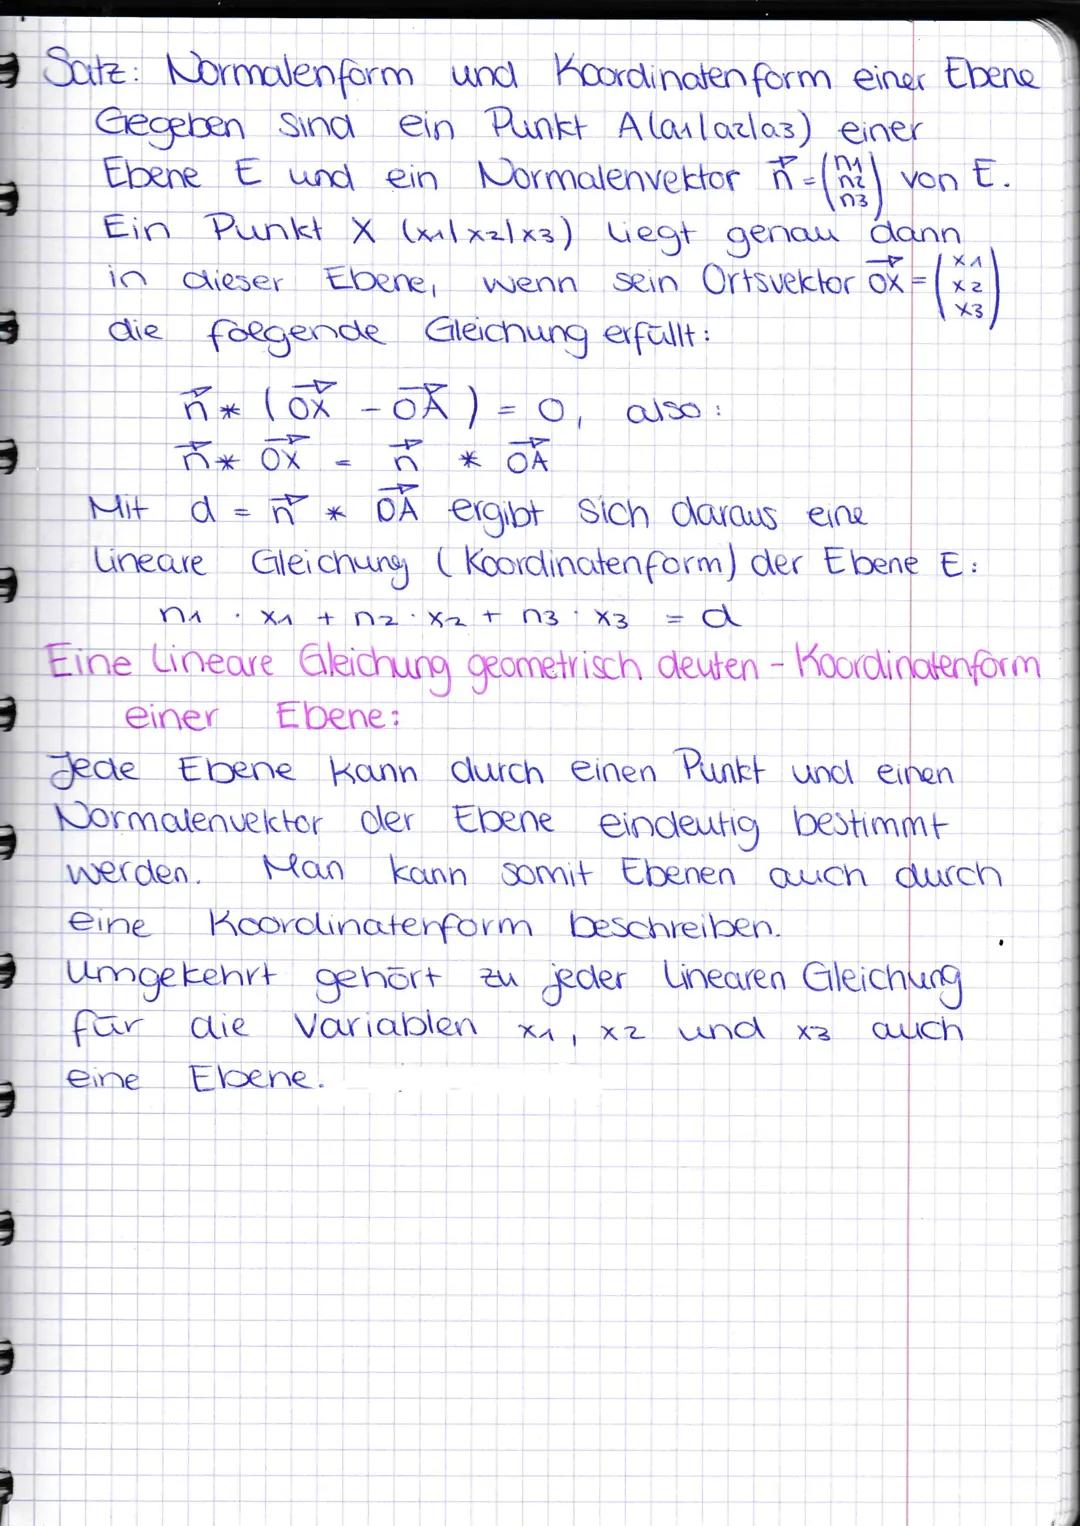 Satz: Normalenform und Koordinatenform einer Ebene
Gegeben sind ein Punkt A(a1|a2|a3) einer
Ebene E und ein Normalenvektor n⃗ = (n1 n2 n3) von E.
Ein Punkt X (x1|x2|x3) liegt genau dann
in dieser Ebene, wenn sein Ortsvektor OX⃗ = (x1 x2 x3)
die folgende Gleichung erfüllt:
n⃗ * (OX⃗ - OA⃗) = 0, also:
n⃗ * OX⃗ = n⃗ * OA⃗
Mit d = n⃗ * OA⃗ ergibt sich daraus eine
lineare Gleichung (Koordinatenform) der Ebene E:
n1 · x1 + n2 · x2 + n3 · x3 = d
Eine lineare Gleichung geometrisch deuten - Koordinatenform
einer Ebene:
Jede Ebene kann durch einen Punkt und einen
Normalenvektor der Ebene eindeutig bestimmt
werden. Man kann somit Ebenen auch durch
eine Koordinatenform beschreiben.
Umgekehrt gehört zu jeder linearen Gleichung
für die Variablen x1, x2 und x3 auch
eine Ebene.